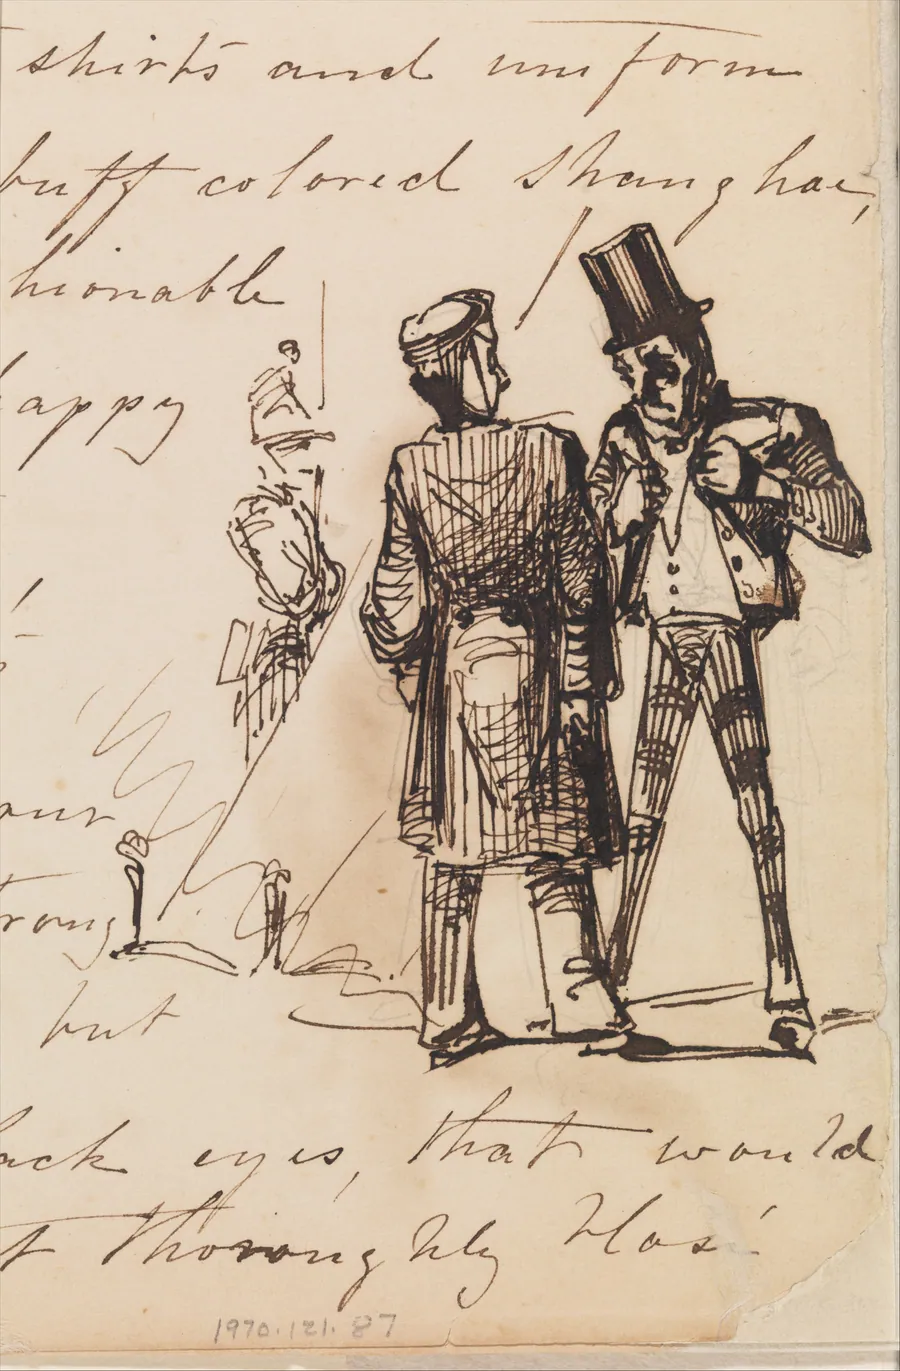 shirts and uniform
buff colored shanghae,
hionable
happy
!
our
trong
but
ack eyes, that would
t thoroughly blas'
1970.121.87